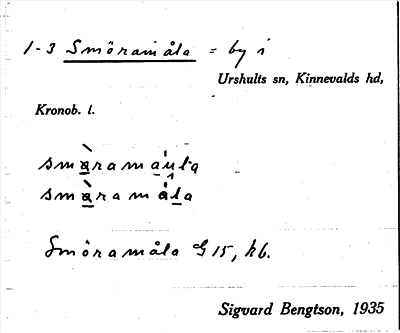 1-3 Smöramåla = by i
Urshults sn, Kinnevalds hd,
Kronob. l.
smàramáu̇la
smàramåla
Smöramåla G 15, kb.
Sigvard Bengtson, 1935